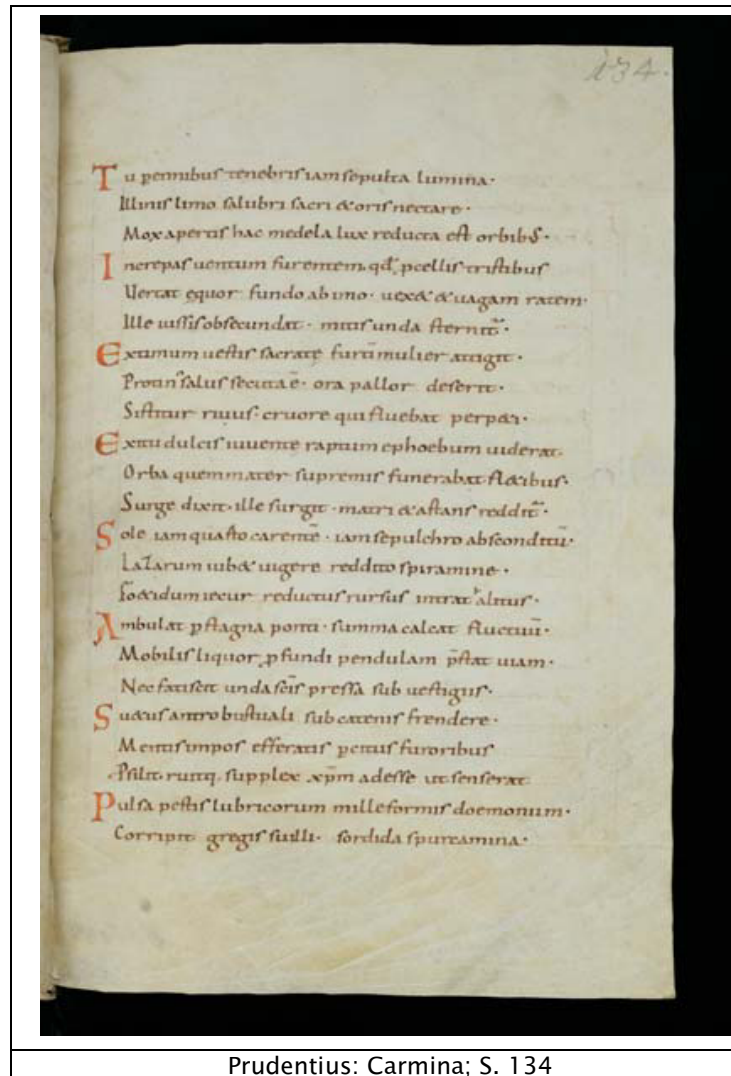 134.
Tu pennibus tenebris iam sepulta lumina·
Illinis limo salubri sacri & oris nectare·
Mox apertis hac medela lux reducta est orbib;·
Increpas uentum furentem, qd pcellis tristibus
Uertat ęquor fundo ab imo· uex& & uagam ratem·
Ille iussis obsecundat· mitis unda sternit·
Extimum uestis sacratę furti mulier attigit·
Protin salus secuta ē· ora pallor deserit·
Sistitur riuus· cruore qui fluebat perp&i·
Exitu dulcis iuuentę raptum ephoebum uiderat·
Orba quem mater supremis funerabat fl&ibus·
Surge dixit· ille surgit· matri & astans reddit·
Sole iam quarto carentē· iam sepulchro absconditū·
Lazarum iub& uigere reddito spiramine·
Fo&idum iecur reductus rursus intrat halitus·
Ambulat p stagna ponti· summa calcat fluctuū·
Mobilis liquor pfundi pendulam pstat uiam·
Nec fatiscit unda scis pressa sub uestigiis·
Su&us antro bustuali sub catenis frendere·
Mentis impos efferatis pcitus furoribus
Psilit· ruitq, supplex xpm adesse ut senserat
Pulsa pestis lubricorum milleformis doemonum·
Corripit gregis suilli· sordida spurcamina·
Prudentius: Carmina; S. 134